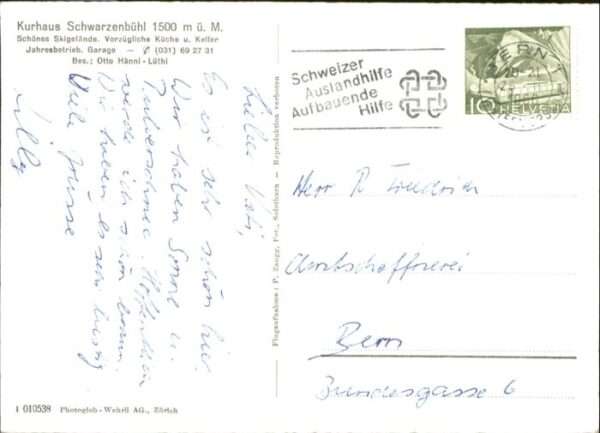 Kurhaus Schwarzenbühl 1500 m ü. M.
Schönes Skigelände. Vorzügliche Küche u. Keller
Jahresbetrieb. Garage — ✆ (031) 69 27 31
Bes.: Otto Hänni-Lüthi
Lieber Vati,
Es ist sehr schön hier.
Wir haben Sonne u.
Pulverschnee. Hoffentlich
werde ich schön braun.
Wir haben es sehr lustig
Viele Grüsse
Flugaufnahme: P. Zaugg, Fot., Solothurn — Reproduktion verboten
Schweizer
Auslandhilfe
Aufbauende
Hilfe
BERN
10 HELVETIA
Herr R. Friedrich
Amtschaffnerei
Bern
Bundesgasse 6
1 010538 Photoglob-Wehrli AG., Zürich